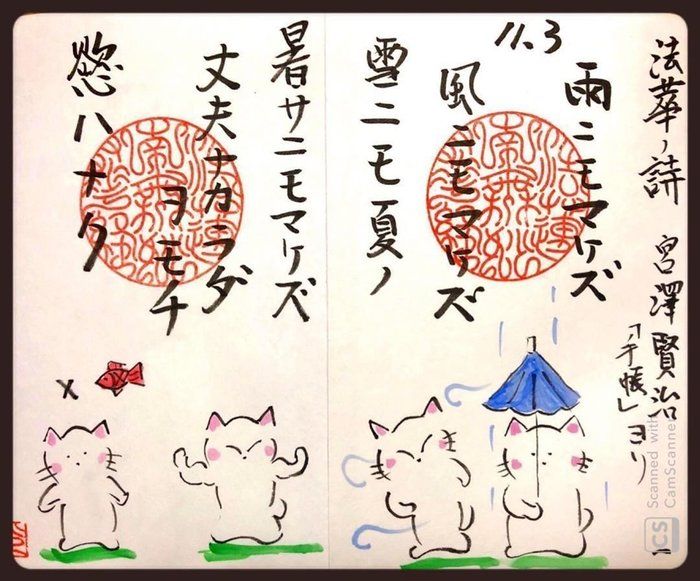 法華ノ詩 宮澤賢治
「手帳」ヨリ
11.3
雨ニモマケズ
風ニモマケズ
雪ニモ夏ノ
暑サニモマケズ
丈夫ナカラダ
ヲモチ
慾ハナク
x
CS
Scanned with
CamScanner